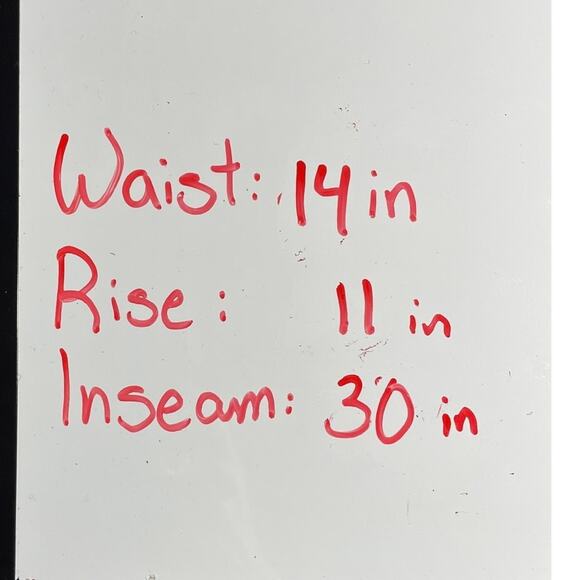 Waist: 14 in
Rise: 11 in
Inseam: 30 in